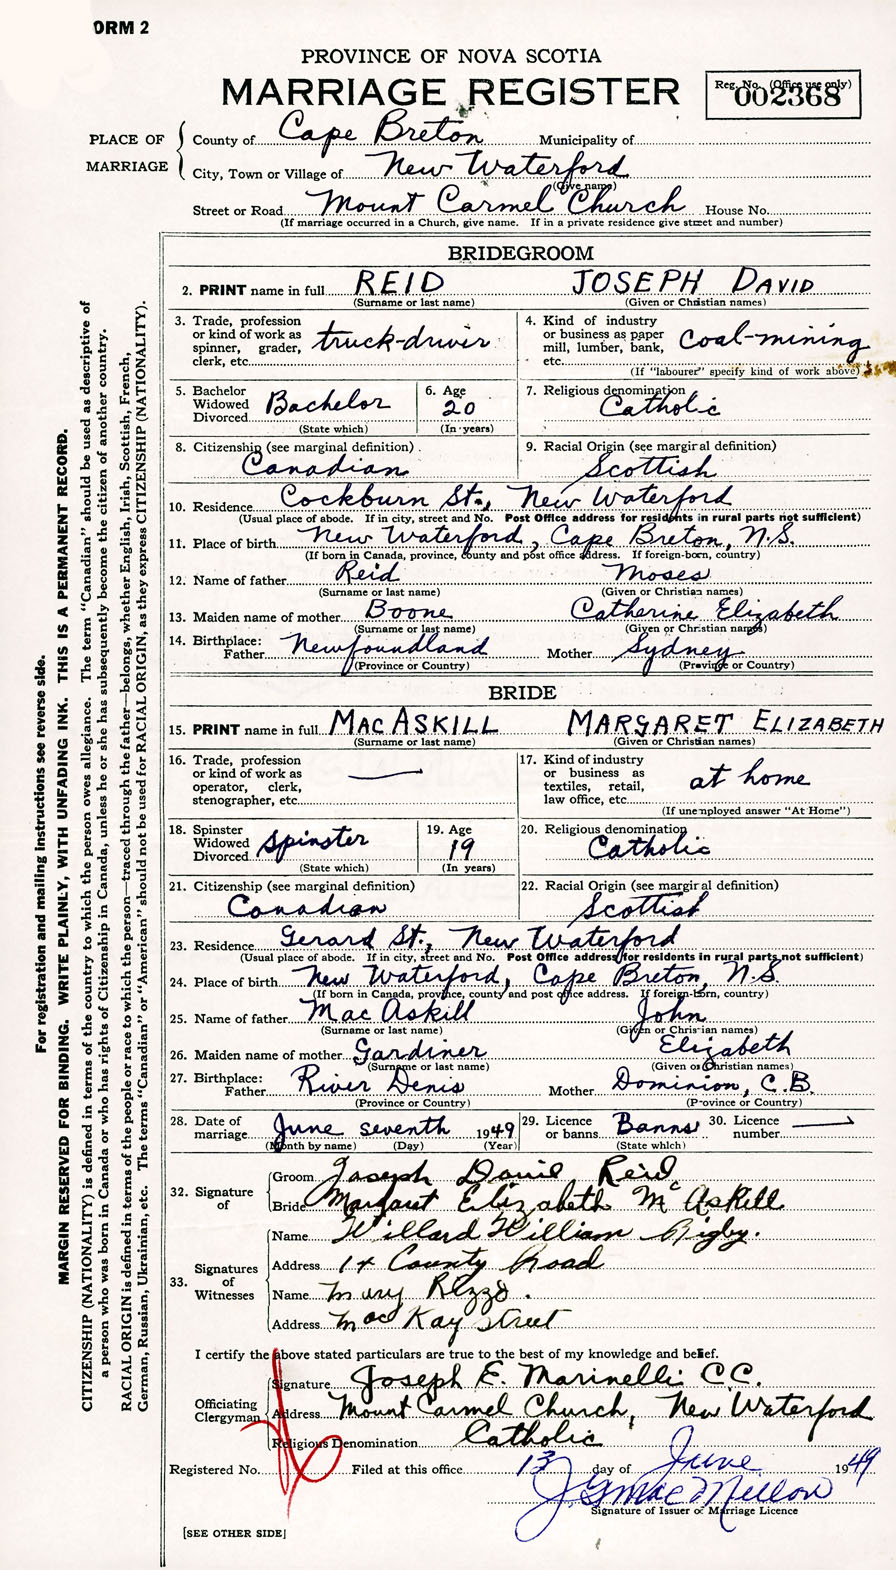 ORM 2
PROVINCE OF NOVA SCOTIA
MARRIAGE REGISTER
Reg. No. (Office use only)
002368
PLACE OF MARRIAGE
County of Cape Breton Municipality of
City, Town or Village of New Waterford
(Give name)
Street or Road Mount Carmel Church House No.
(If marriage occurred in a Church, give name. If in a private residence give street and number)
BRIDEGROOM
2. PRINT name in full REID JOSEPH DAVID
(Surname or last name) (Given or Christian names)
3. Trade, profession or kind of work as spinner, grader, clerk, etc. truck-driver
4. Kind of industry or business as paper mill, lumber, bank, etc. Coal-mining
(If "labourer" specify kind of work above)
5. Bachelor Widowed Divorced Bachelor
(State which)
6. Age 20
(In years)
7. Religious denomination Catholic
8. Citizenship (see marginal definition) Canadian
9. Racial Origin (see marginal definition) Scottish
10. Residence Cockburn St., New Waterford
(Usual place of abode. If in city, street and No. Post Office address for residents in rural parts not sufficient)
11. Place of birth New Waterford, Cape Breton, N.S.
(If born in Canada, province, county and post office address. If foreign-born, country)
12. Name of father Reid Moses
(Surname or last name) (Given or Christian names)
13. Maiden name of mother Boone Catherine Elizabeth
(Surname or last name) (Given or Christian names)
14. Birthplace: Father Newfoundland Mother Sydney
(Province or Country) (Province or Country)
BRIDE
15. PRINT name in full MACASKILL MARGARET ELIZABETH
(Surname or last name) (Given or Christian names)
16. Trade, profession or kind of work as operator, clerk, stenographer, etc. —
17. Kind of industry or business as textiles, retail, law office, etc. at home
(If unemployed answer "At Home")
18. Spinster Widowed Divorced Spinster
(State which)
19. Age 19
(In years)
20. Religious denomination Catholic
21. Citizenship (see marginal definition) Canadian
22. Racial Origin (see marginal definition) Scottish
23. Residence Gerard St., New Waterford
(Usual place of abode. If in city, street and No. Post Office address for residents in rural parts not sufficient)
24. Place of birth New Waterford, Cape Breton, N.S.
(If born in Canada, province, county and post office address. If foreign-born, country)
25. Name of father MacAskill John
(Surname or last name) (Given or Christian names)
26. Maiden name of mother Gardiner Elizabeth
(Surname or last name) (Given or Christian names)
27. Birthplace: Father River Denis Mother Dominion, C.B.
(Province or Country) (Province or Country)
28. Date of marriage June seventh 1949
(Month by name) (Day) (Year)
29. Licence or banns Banns
(State which)
30. Licence number —
32. Signature of
Groom Joseph David Reid
Bride Margaret Elizabeth McAskill
33. Signatures of Witnesses
Name Willard William Rigby.
Address 14 County Road
Name Mary Rizzo.
Address MacKay Street
I certify the above stated particulars are true to the best of my knowledge and belief.
Officiating Clergyman
Signature Joseph E. Marinelli C.C.
Address Mount Carmel Church, New Waterford
Religious Denomination Catholic
Registered No. Filed at this office 13 day of June 1949
J. G. MacMillan
Signature of Issuer of Marriage Licence
[SEE OTHER SIDE]
For registration and mailing instructions see reverse side.
MARGIN RESERVED FOR BINDING. WRITE PLAINLY, WITH UNFADING INK. THIS IS A PERMANENT RECORD.
CITIZENSHIP (NATIONALITY) is defined in terms of the country to which the person owes allegiance. The term "Canadian" should be used as descriptive of
a person who was born in Canada or who has rights of Citizenship in Canada, unless he or she has subsequently become the citizen of another country.
RACIAL ORIGIN is defined in terms of the people or race to which the person—traced through the father—belongs, whether English, Irish, Scottish, French,
German, Russian, Ukrainian, etc. The terms "Canadian" or "American" should not be used for RACIAL ORIGIN, as they express CITIZENSHIP (NATIONALITY).